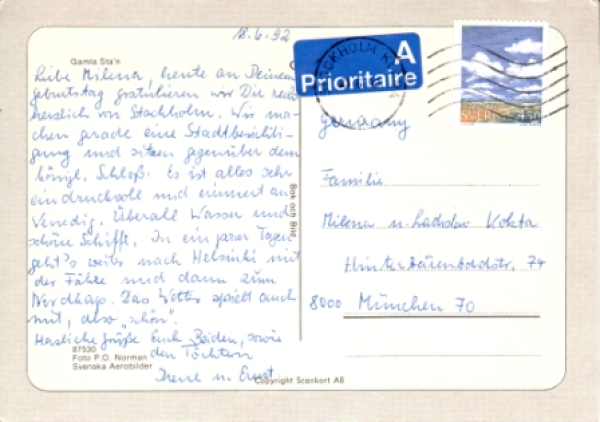 18.6.92
Gamla Sta'n
Liebe Milena, heute an Deinem
Geburtstag gratulieren wir Dir recht
herzlich von Stockholm. Wir ma-
chen gerade eine Stadtbesichti-
gung und sitzen gegenüber dem
königl. Schloß. Es ist alles sehr
eindrucksvoll und erinnert an
Venedig. Überall Wasser und
schöne Schiffe. In ein paar Tagen
geht's weiter nach Helsinki mit
der Fähre und dann zum
Nordkap. Das Wetter spielt auch
mit, also „schön".
Herzliche Grüße Euch Beiden, sowie
den Töchtern
Irene u. Ernst
87530
Foto P.O. Norman
Svenska Aerobilder
Bok och Bild
Copyright Scankort AB
A
Prioritaire
STOCKHOLM
SVERIGE
Germany
Familie
Milena u. Ladislav
Hinterbärenbadstr. 74
8000 München 70